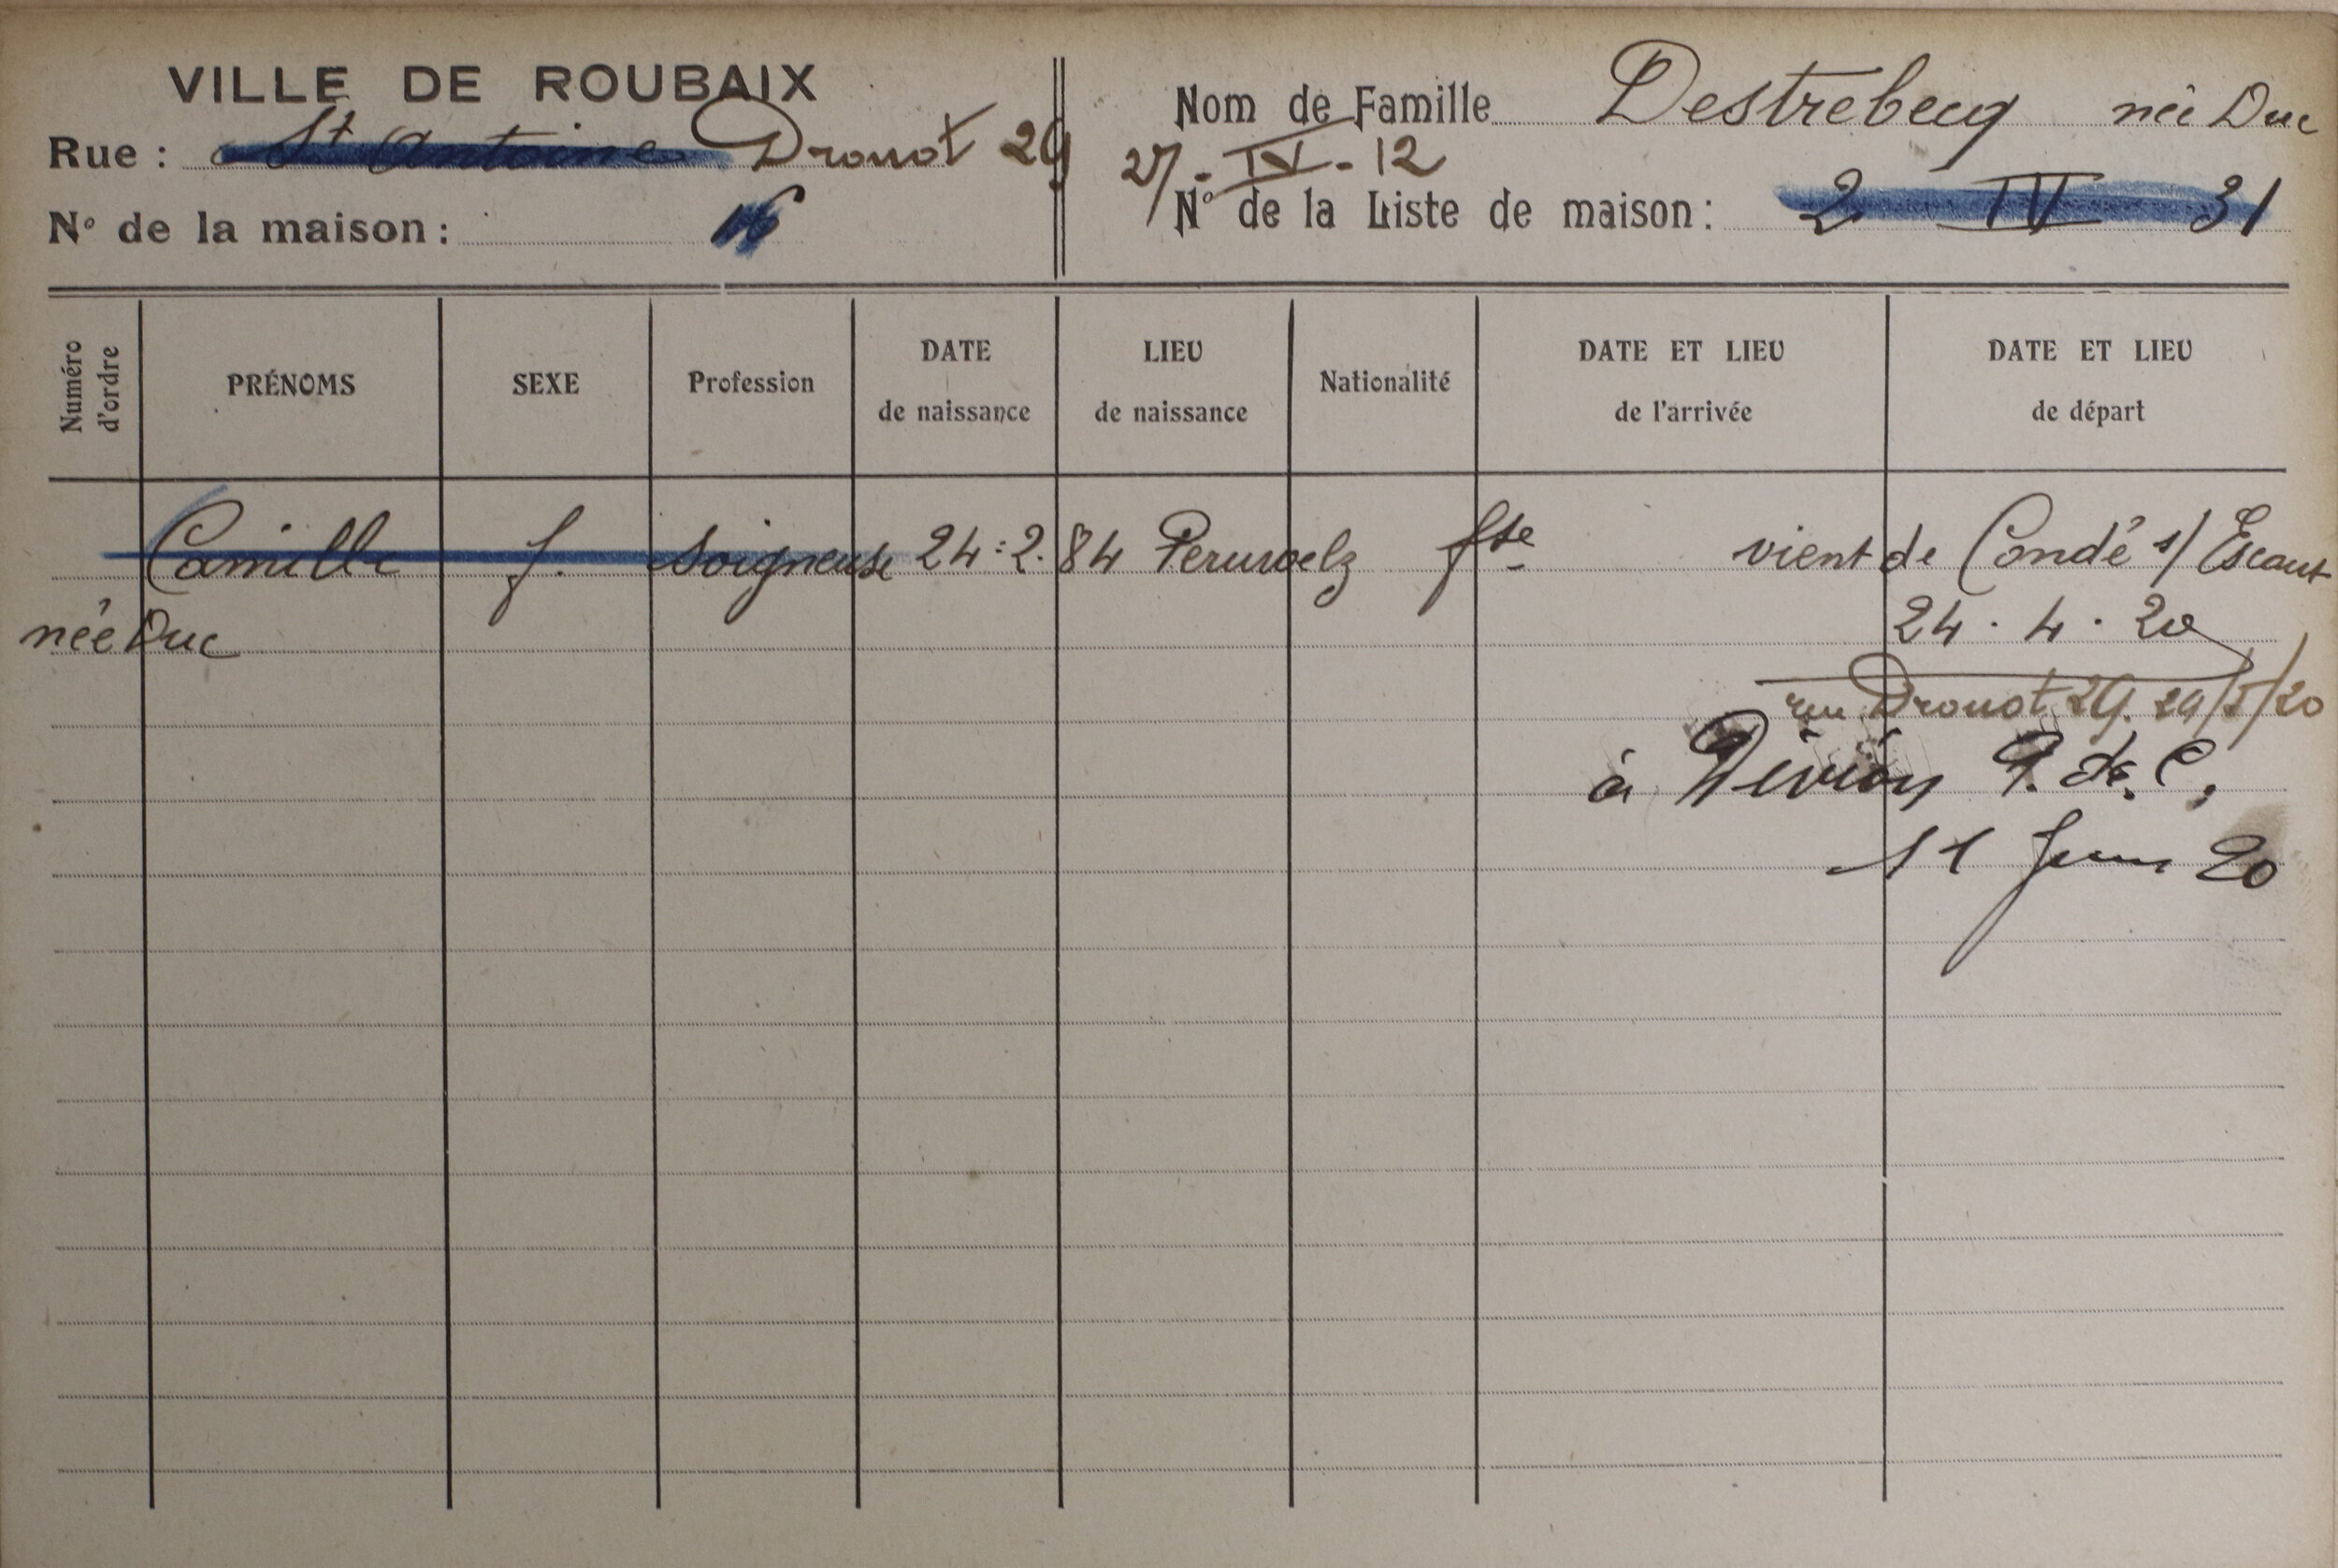 VILLE DE ROUBAIX
Rue : St Antoine Drouot 29
N° de la maison : 16
Nom de Famille Destrebecq née Duc
27 - IV - 12
N° de la Liste de maison : 2 IV 31
Numéro d'ordre
PRÉNOMS
SEXE
Profession
DATE de naissance
LIEU de naissance
Nationalité
DATE ET LIEU de l'arrivée
DATE ET LIEU de départ
Camille f. Soigneuse 24-2.84 Peruwelz fse vient de Condé s/ Escaut
née Duc 24.4.20
rue Drouot 29. 29/5/20
à Divion P. de C.
11 Juin 20